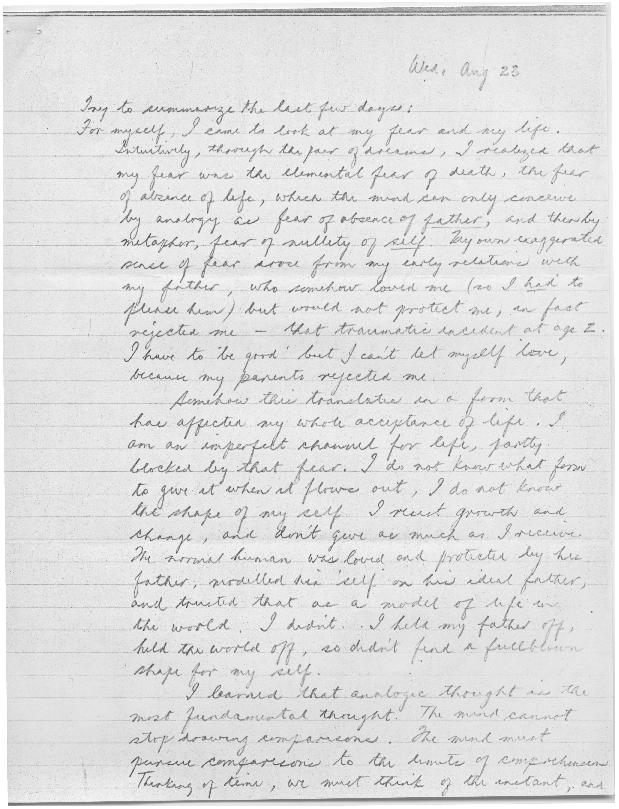 Wed. Aug 23
Try to summarize the last few days:
For myself, I came to look at my fear and my life.
Intuitively, through the pair of dreams, I realized that
my fear was the elemental fear of death, the fear
of absence of life, which the mind can only conceive
by analogy as fear of absence of father, and thereby
metaphor, fear of nullity of self. My own exaggerated
sense of fear arose from my early relations with
my father, who somehow loved me (so I had to
please him) but would not protect me, in fact
rejected me — that traumatic incident at age 2.
I have to 'be good' but I can't let myself 'love,'
because my parents rejected me.
Somehow this translates in a form that
has affected my whole acceptance of life. I
am an imperfect channel for life, partly
blocked by that fear. I do not know what form
to give it when it flows out, I do not know
the shape of my self. I resist growth and
change, and don't give as much as I receive.
The normal human was loved and protected by his
father, modelled his 'self' on his ideal father,
and trusted that as a model of life in
the world. I didn't. I held my father off,
held the world off, so didn't find a fullblown
shape for my self.
I learned that analogic thought is the
most fundamental thought. The mind cannot
stop drawing comparisons. The mind must
pursue comparisons to the limits of comprehension
Thinking of time, we must think of the instant, and